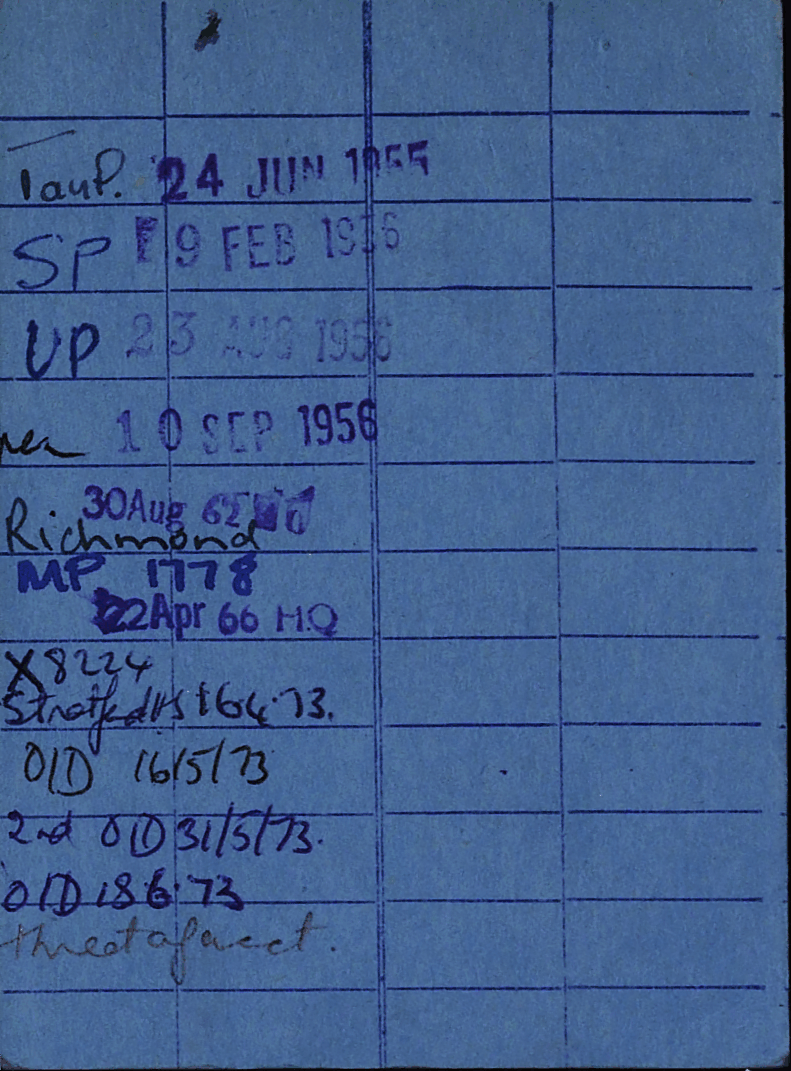 TauP. 24 JUN 1955
SP 9 FEB 1956
UP 23 AUG 1956
10 SEP 1956
30 Aug 62
Richmond
MP 1778
22 Apr 66 HQ
X8224
Stratford HS 16.4.73.
O/D 16/5/73
2nd O/D 31/5/73.
O/D 18.6.73
threat of acct.